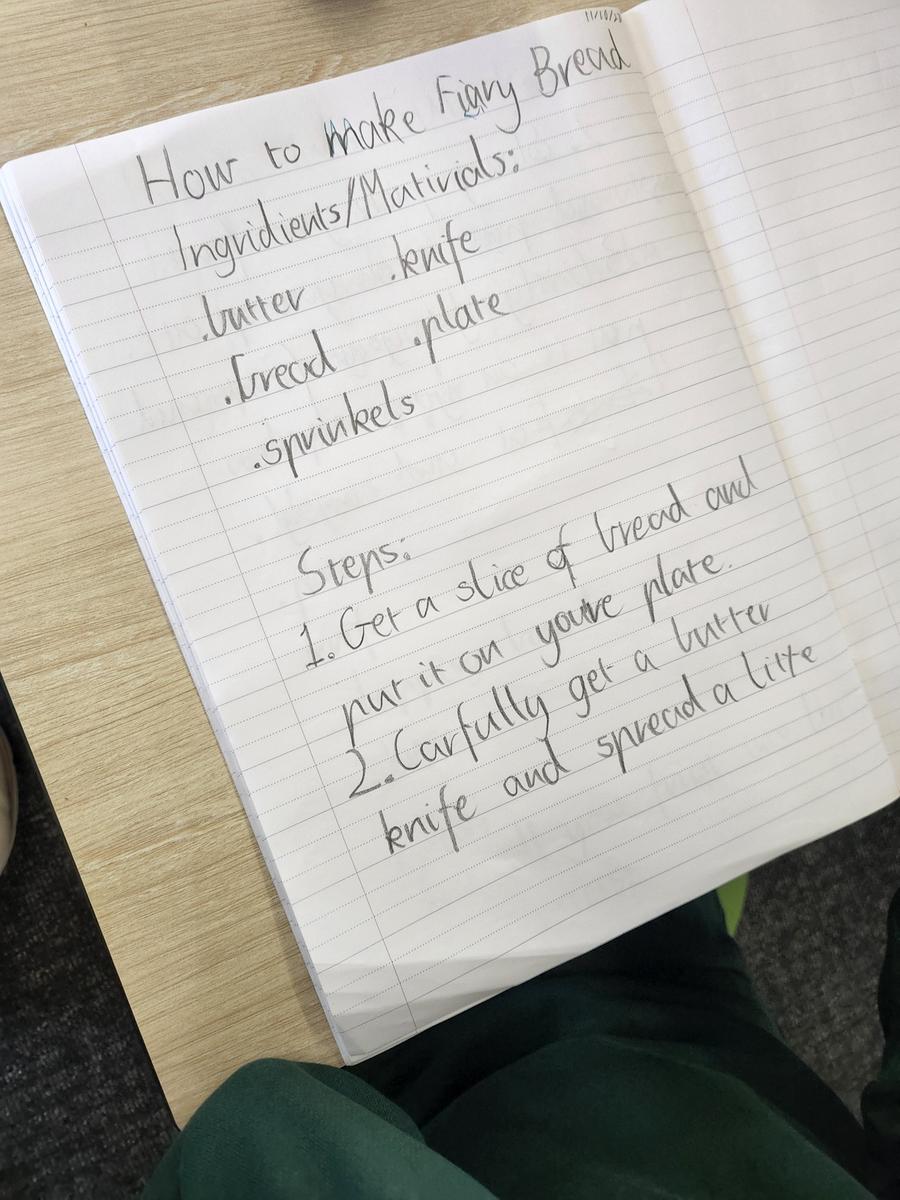 How to make Fiary Bread
Ingridients/Mativials:
.butter .knife
.bread .plate
.sprinkels
Steps:
1. Get a slice of bread and
put it on youre plate.
2. Carfully get a butter
knife and spread a litte